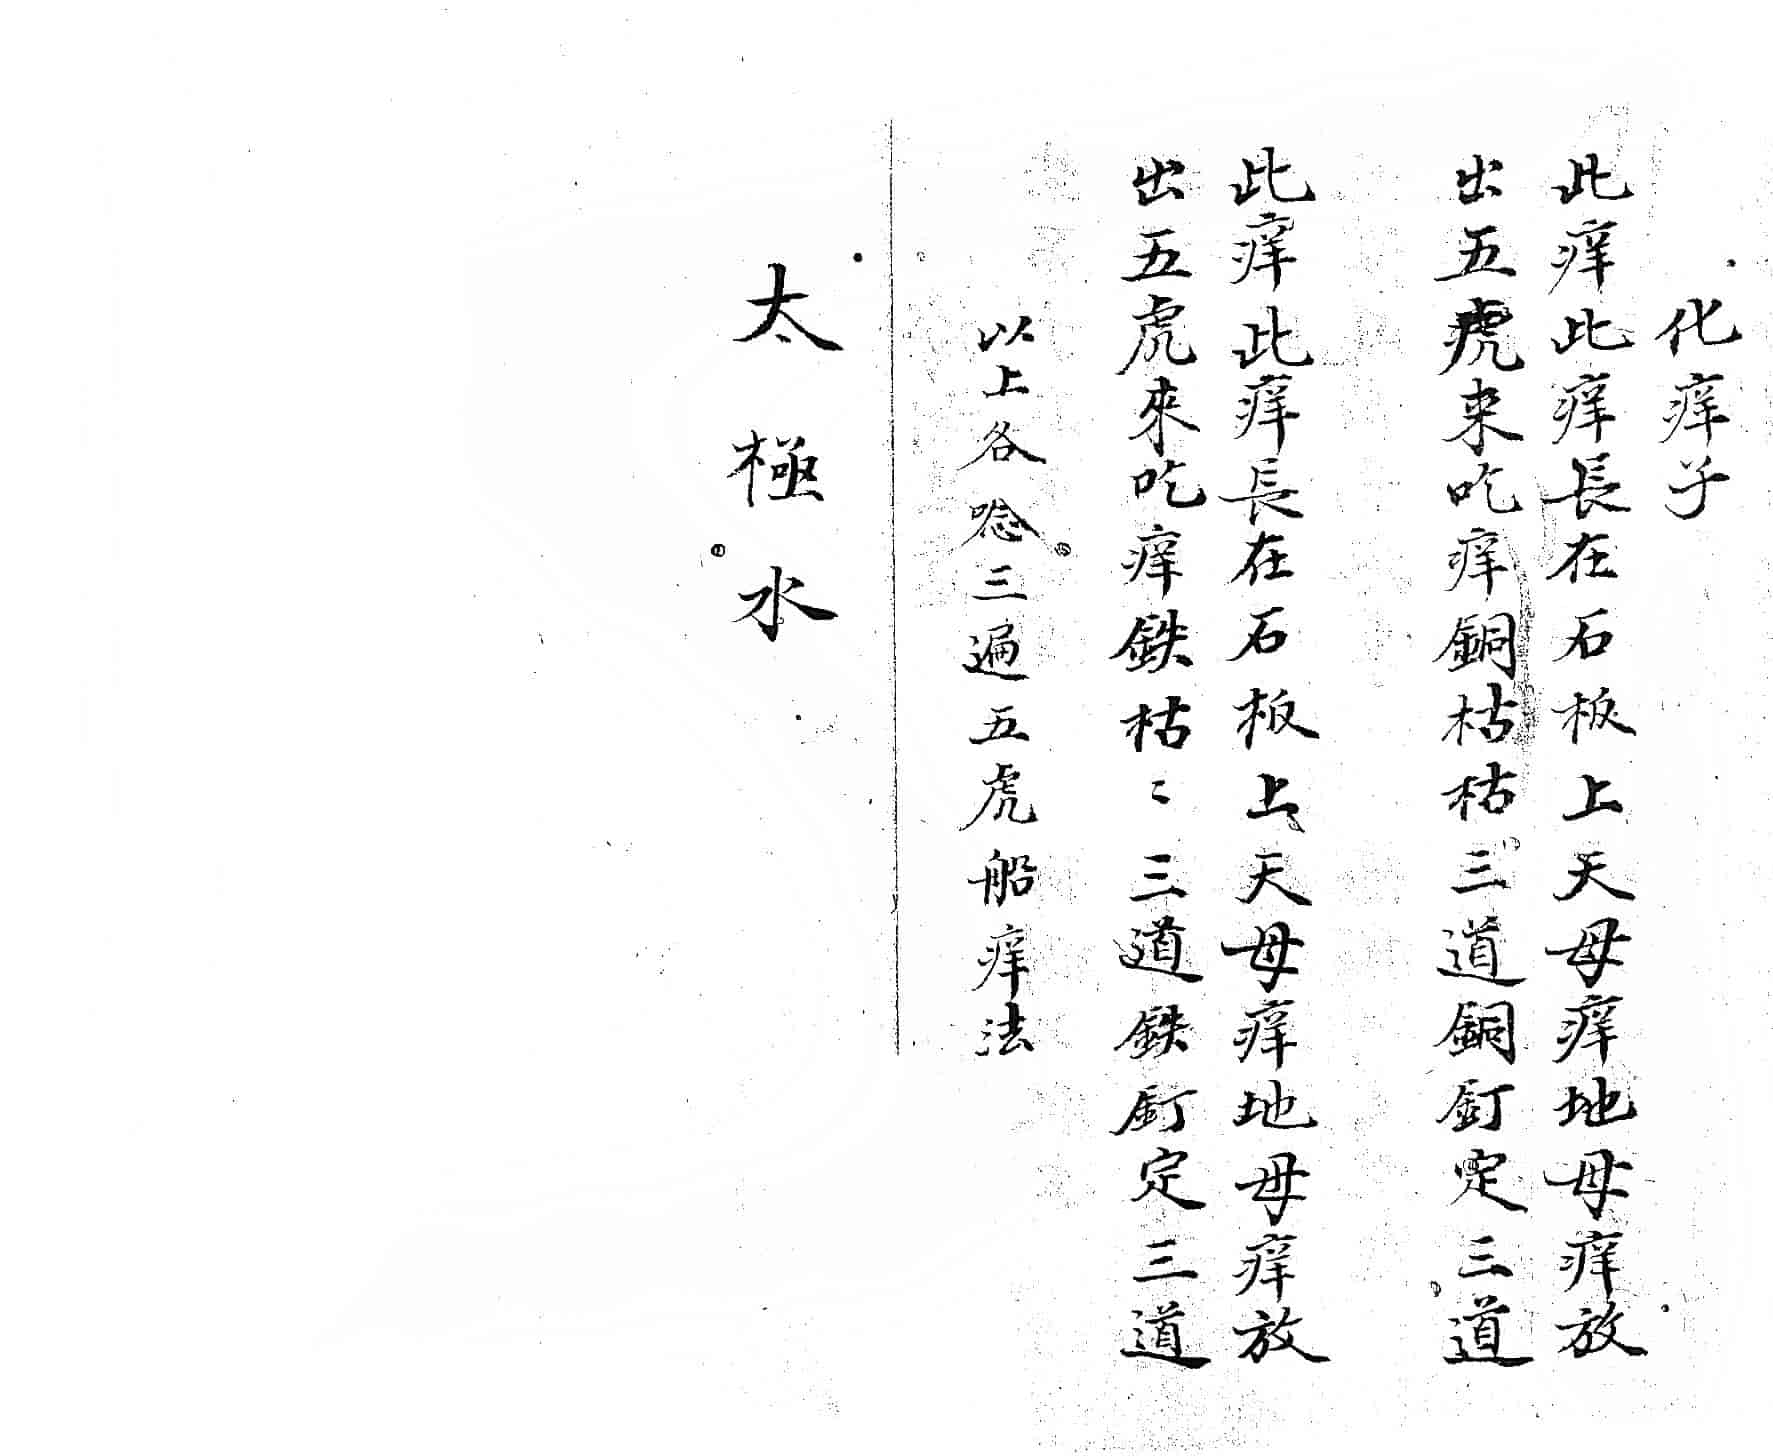 化痒子
此痒此痒長在石板上天母痒地母痒放
出五虎来吃痒銅枯枯三道銅釘定三道
此痒此痒長在石板上天母痒地母痒放
出五虎來吃痒鉄枯〻三道鉄釘定三道
以上各唸三遍五虎船痒法
太極水